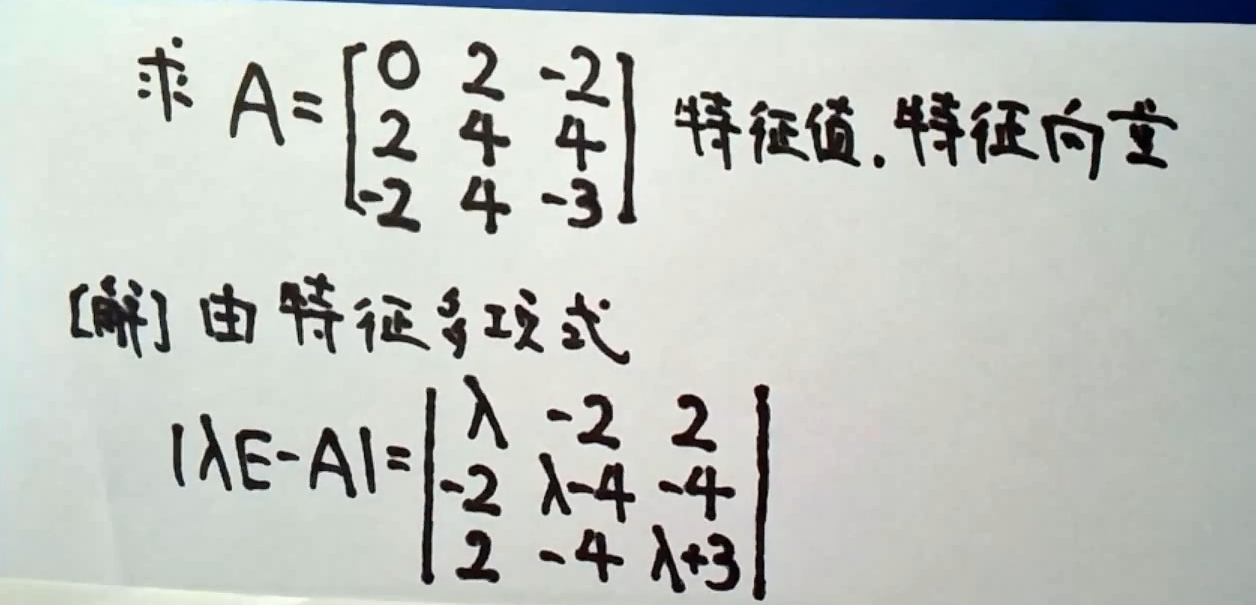 求 A = [0 2 -2; 2 4 4; -2 4 -3] 特征值.特征向量
[解] 由特征多项式
|λE-A| = |λ -2 2; -2 λ-4 -4; 2 -4 λ+3|